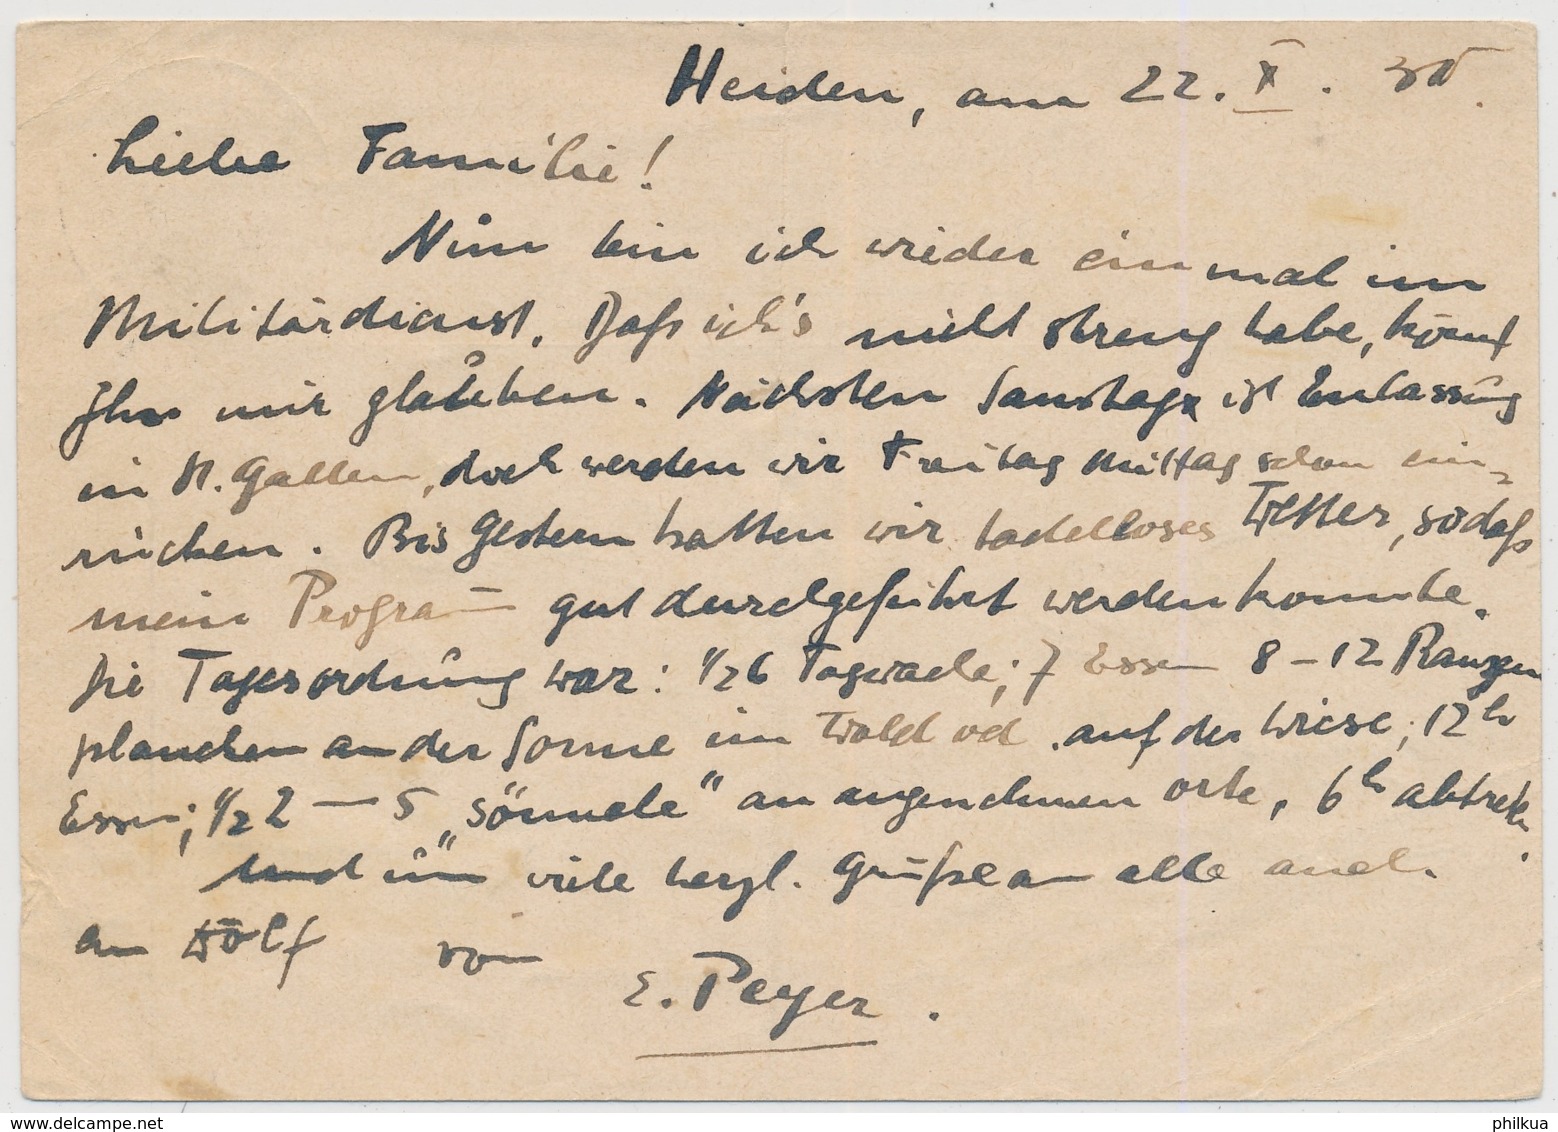 Heiden, am 22. X. 30.
Liebe Familie!
Nun bin ich wieder einmal im
Militärdienst. Daß ich's nicht streng habe, könnt
Ihr mir glauben. Nächsten Samstag ist Entlassung
in St. Gallen, doch werden wir Freitag Mittag schon ein-
rücken. Bis Gestern hatten wir tadelloses Wetter, sodaß
mein Program gut durchgeführt werden konnte.
Die Tagesordnung war: 1/2 6 Tagwache; 7 Essen 8-12
planchen an der Sonne im Wald od. auf der Wiese; 12h
Essen; 1/2 2 — 5 „Sönnele" an angenehmen Orte, 6h abtreten.
und nun viele herzl. Grüße an alle auch
an Wolf von
E. Peyer.
www.delcampe.net
philkua